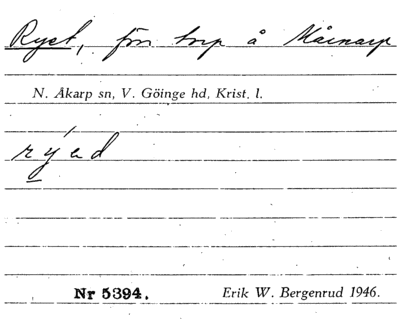 Ryet, förr torp å Mårnarp
N. Åkarp sn, V. Göinge hd, Krist. l.
rýed
Nr 5394. Erik W. Bergenrud 1946.